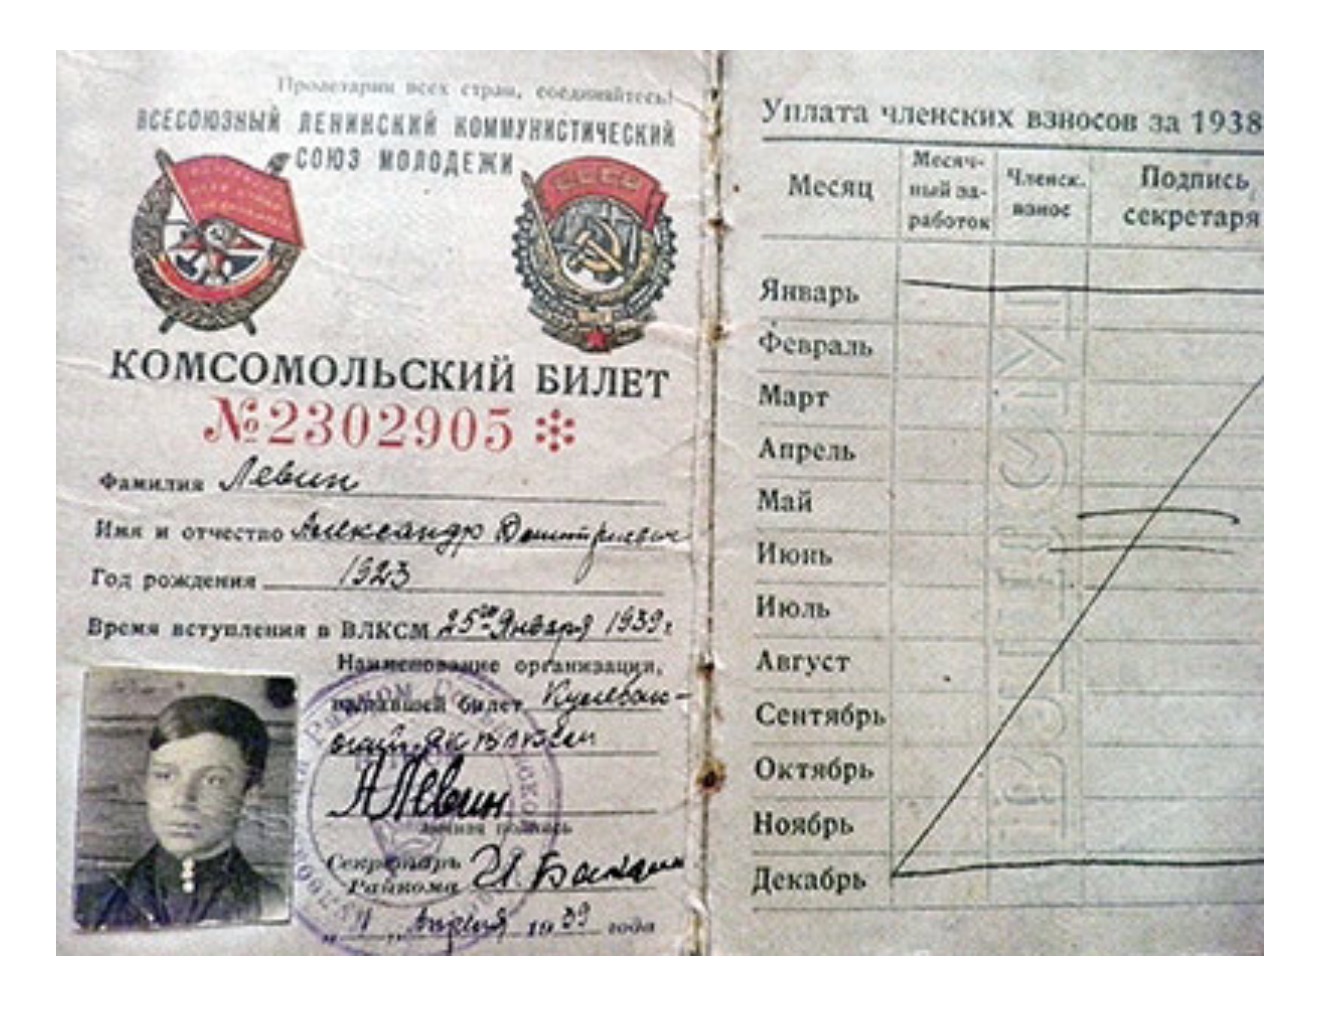 Пролетарии всех стран, соединяйтесь!
ВСЕСОЮЗНЫЙ ЛЕНИНСКИЙ КОММУНИСТИЧЕСКИЙ
СОЮЗ МОЛОДЕЖИ
СССР
КОМСОМОЛЬСКИЙ БИЛЕТ
№2302905
Фамилия Левин
Имя и отчество Александр Дмитриевич
Год рождения 1923
Время вступления в ВЛКСМ 25го Января 1939 г.
Наименование организации,
выдавшей билет
РК ВЛКСМ
А Левин
личная подпись
Секретарь
Райкома
Апреля 1939 года
Уплата членских взносов за 1938
Месяц
Месяч-
ный за-
работок
Членск.
взнос
Подпись
секретаря
Январь
Февраль
Март
Апрель
Май
Июнь
Июль
Август
Сентябрь
Октябрь
Ноябрь
Декабрь